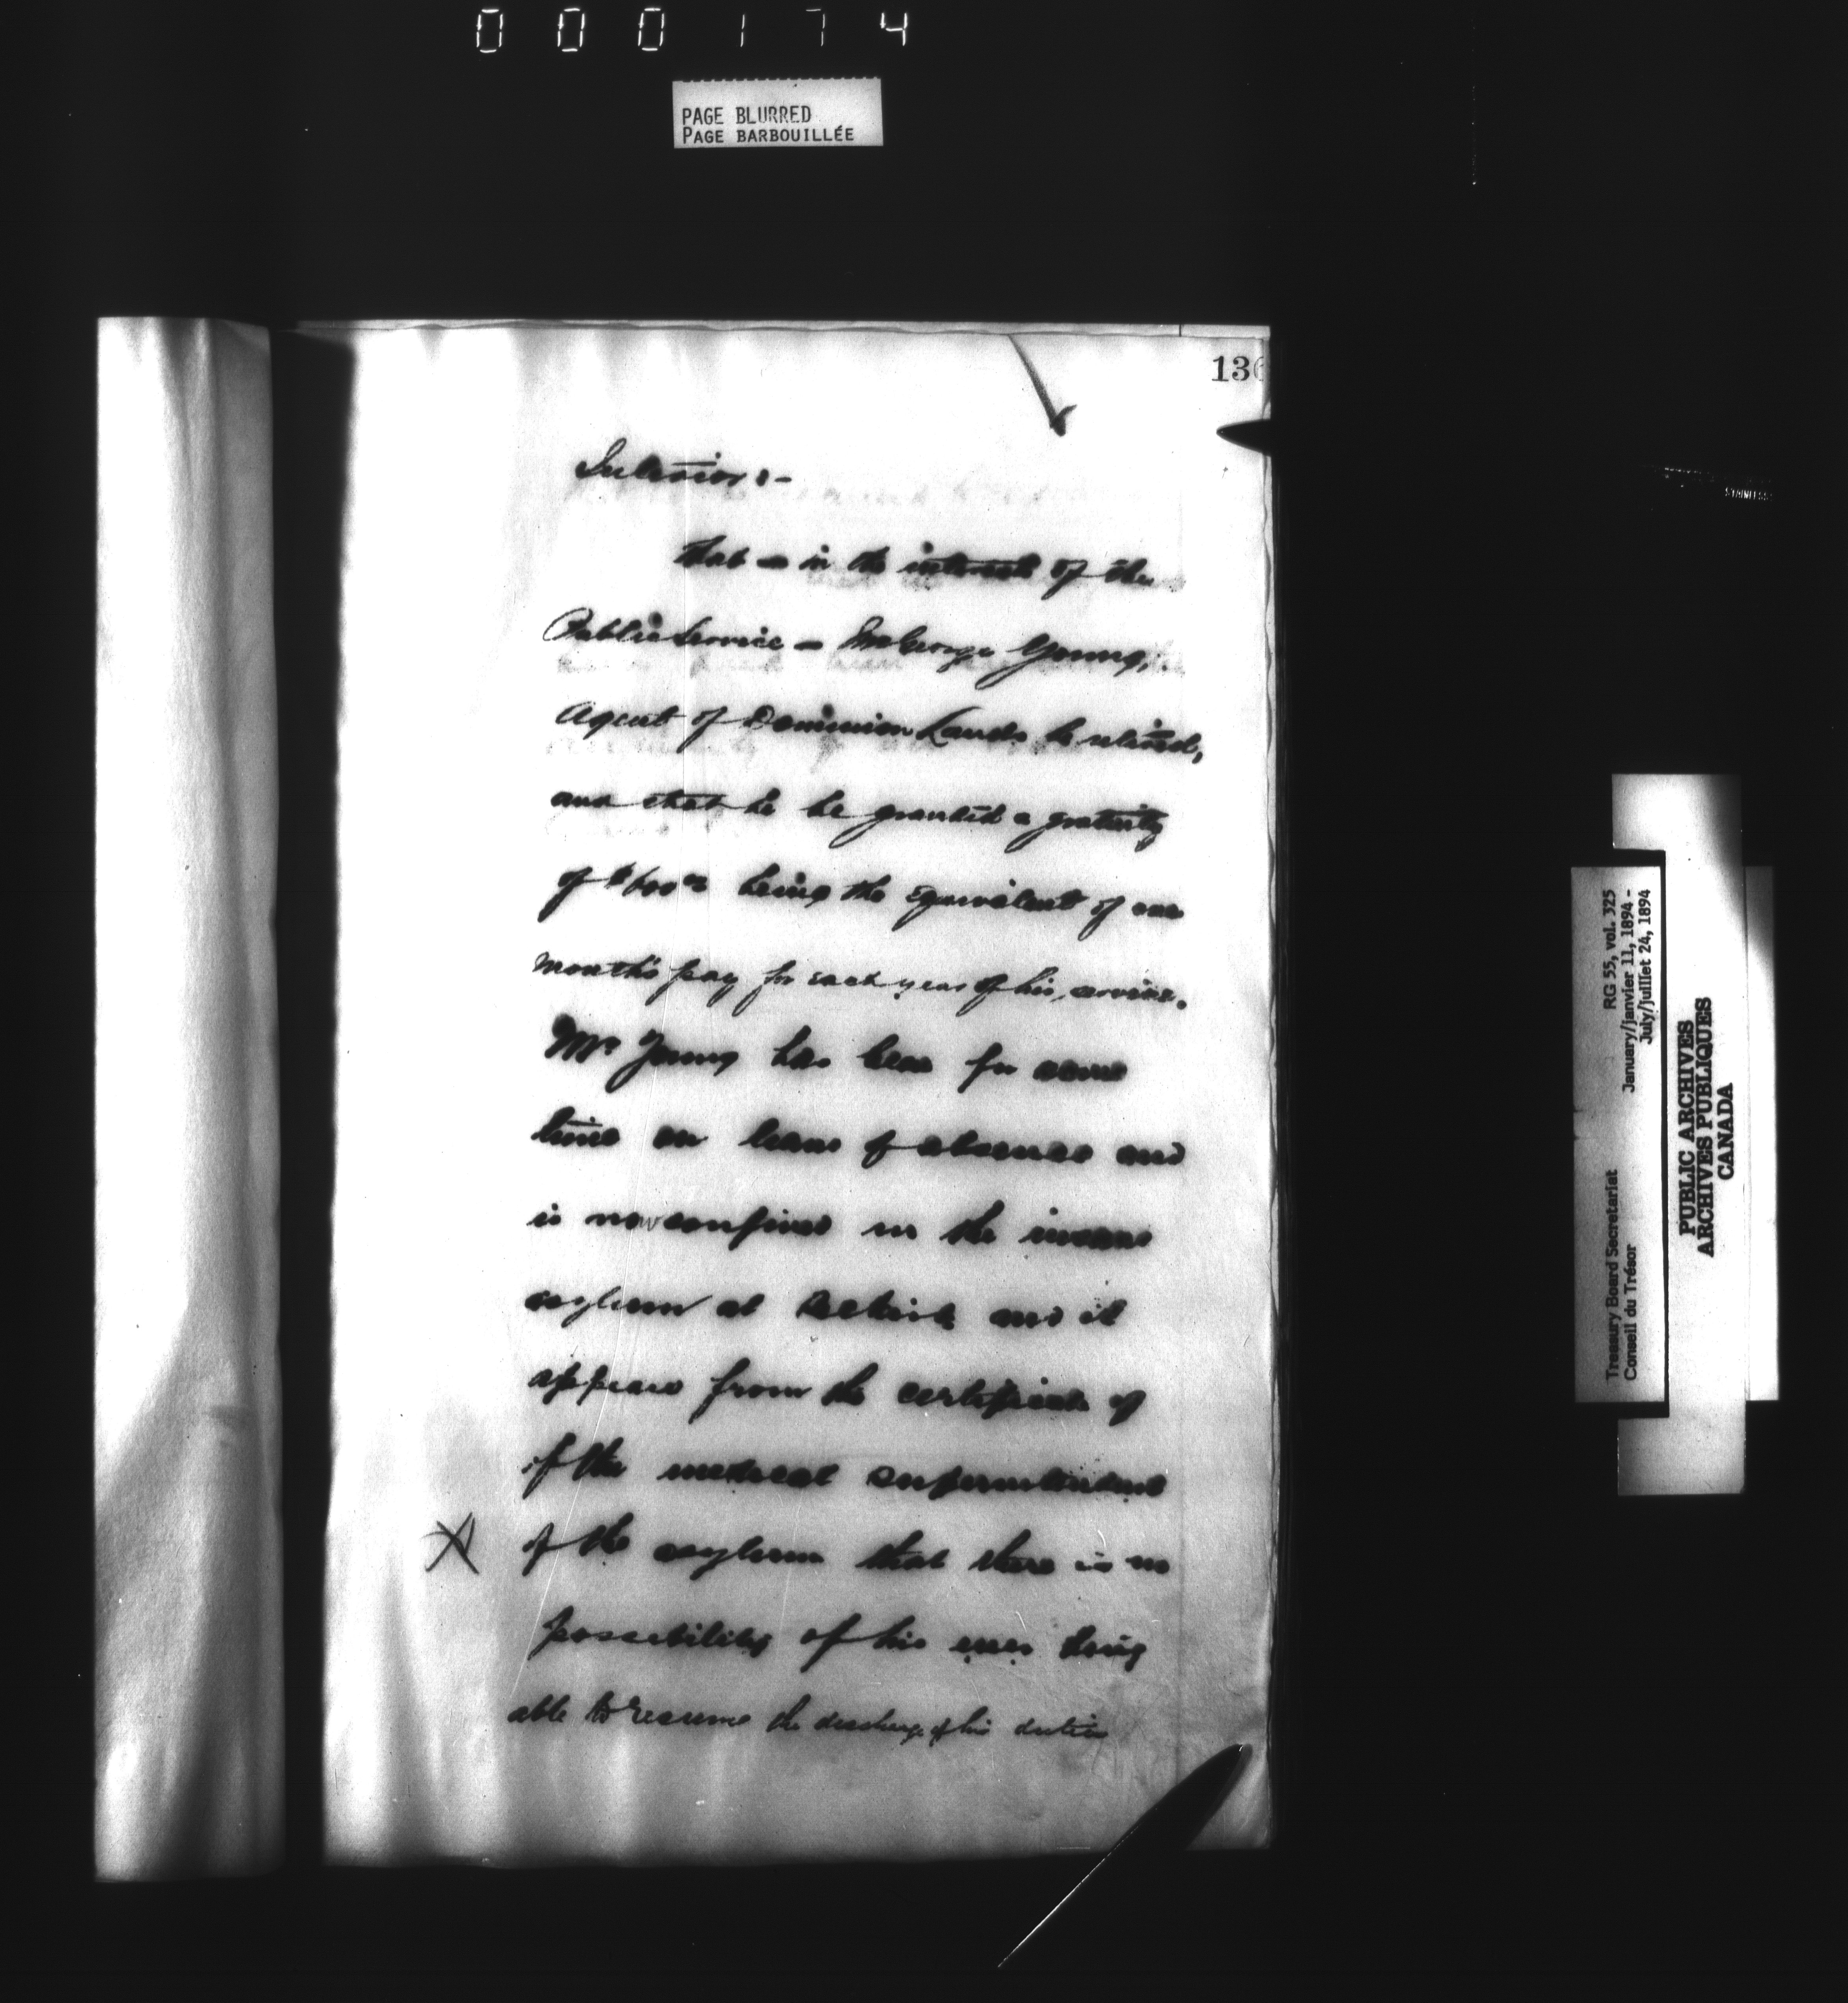 000174
PAGE BLURRED
PAGE BARBOUILLÉE
136
Interior :-
that - in the interest of the
Public Service - Mr George Young,
Agent of Dominion Lands be retired,
and that he be granted a gratuity
of $600 00 being the equivalent of one
month's pay for each year of his service.
Mr Young has been for some
time on leave of absence and
is now confined in the insane
asylum at Selkirk and it
appears from the certificate of
of the medical superintendent
X of the asylum that there is no
possibility of his ever being
able to resume the discharge of his duties
Treasury Board Secretariat RG 55, vol. 325
Conseil du Trésor January/janvier 11, 1894 -
July/juillet 24, 1894
PUBLIC ARCHIVES
ARCHIVES PUBLIQUES
CANADA
STAINLESS